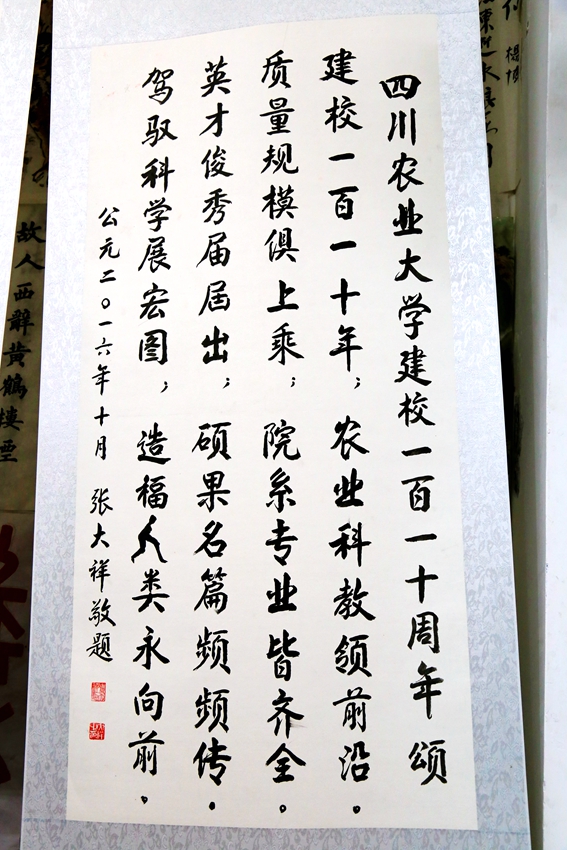 四川农业大学建校一百一十周年颂
建校一百一十年；农业科教领前沿。
质量规模俱上乘；院系专业皆齐全。
英才俊秀届届出；硕果名篇频频传。
驾驭科学展宏图；造福人类永向前。
公元二〇一六年十月 张大祥敬题
故人西辞黄鹤楼烟